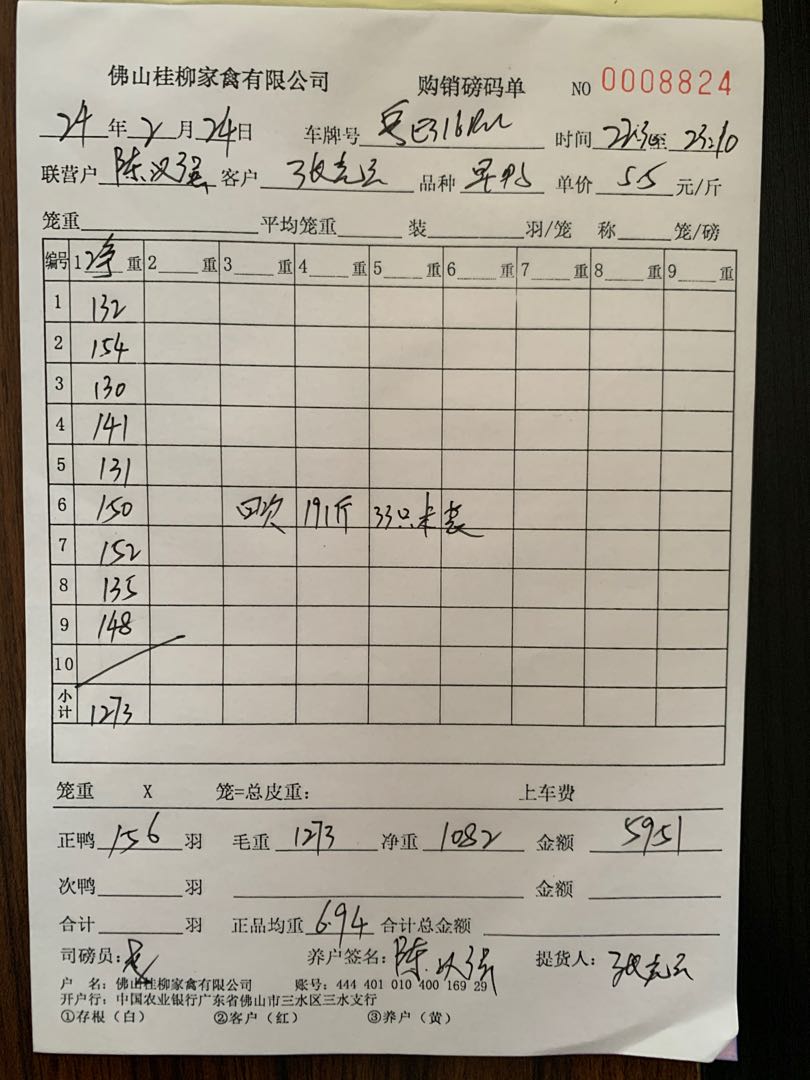 佛山桂柳家禽有限公司 购销磅码单 NO 0008824
24年2月24日 车牌号 时间 至 23:10
联营户 陈汉强 客户 张克云 品种 单价 5.5 元/斤
笼重 平均笼重 装 羽/笼 称 笼/磅
编号 1 净 重 2 重 3 重 4 重 5 重 6 重 7 重 8 重 9 重
1 132
2 154
3 130
4 141
5 131
6 150 回次 191斤 33只未装
7 152
8 135
9 148
10
小计 1273
笼重 X 笼=总皮重: 上车费
正鸭 156 羽 毛重 1273 净重 1082 金额 5951
次鸭 羽 金额
合计 羽 正品均重 6.94 合计总金额
司磅员: 养户签名: 陈汉强 提货人: 张克云
户 名: 佛山桂柳家禽有限公司 账号: 444 401 010 400 169 29
开户行: 中国农业银行广东省佛山市三水区三水支行
①存根(白) ②客户(红) ③养户(黄)